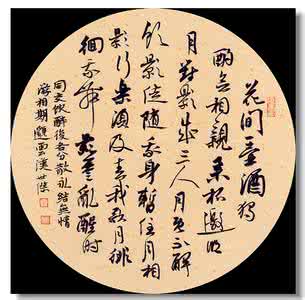 花间壶酒独
酌无相亲举杯邀明
月对影成三人月既不解
饮影徒随我身暂伴月将
影行乐须及春我歌月徘
徊我舞影零乱醒时
同交欢醉后各分散永结无情
游相期邈云汉